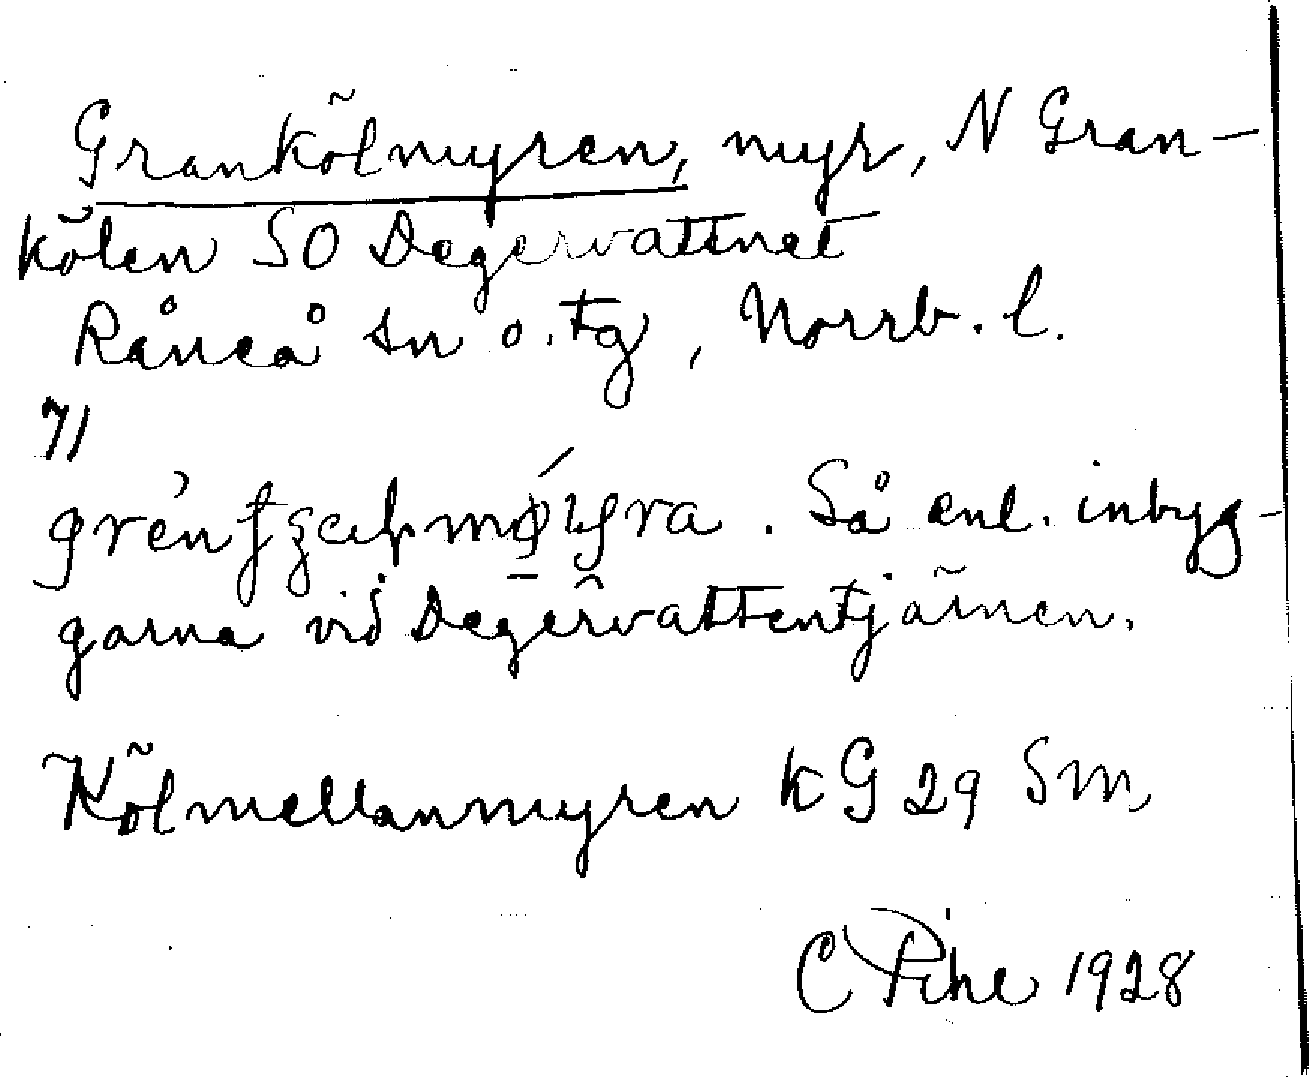 Grankölmyren, myr, N Gran-
kölen SO Degervattnet
Råneå sn o. tg, Norrb. l.
71
. Så enl. inbyg-
garna vid Degervattentjärnen.
Kölmellanmyren kG 29 Sm
C Pihl 1928